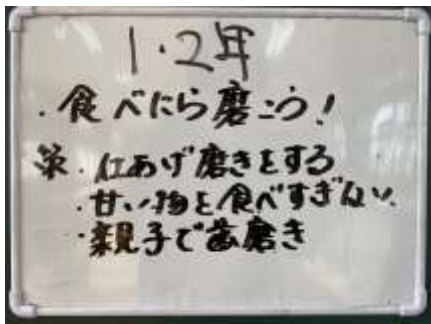 1・2年
・食べたら磨こう!
策・仕あげ磨きをする
・甘い物を食べすぎない。
・親子で歯磨き